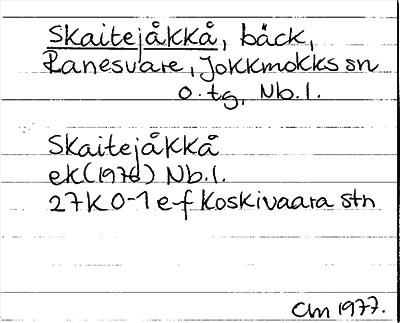 Skaitejåkkå, bäck,
Ranesvare, Jokkmokks sn
o. tg, Nb.l.
Skaitejåkkå
ek (1976) Nb.l.
27K 0-1 e-f Koskivaara stn
CM 1977.